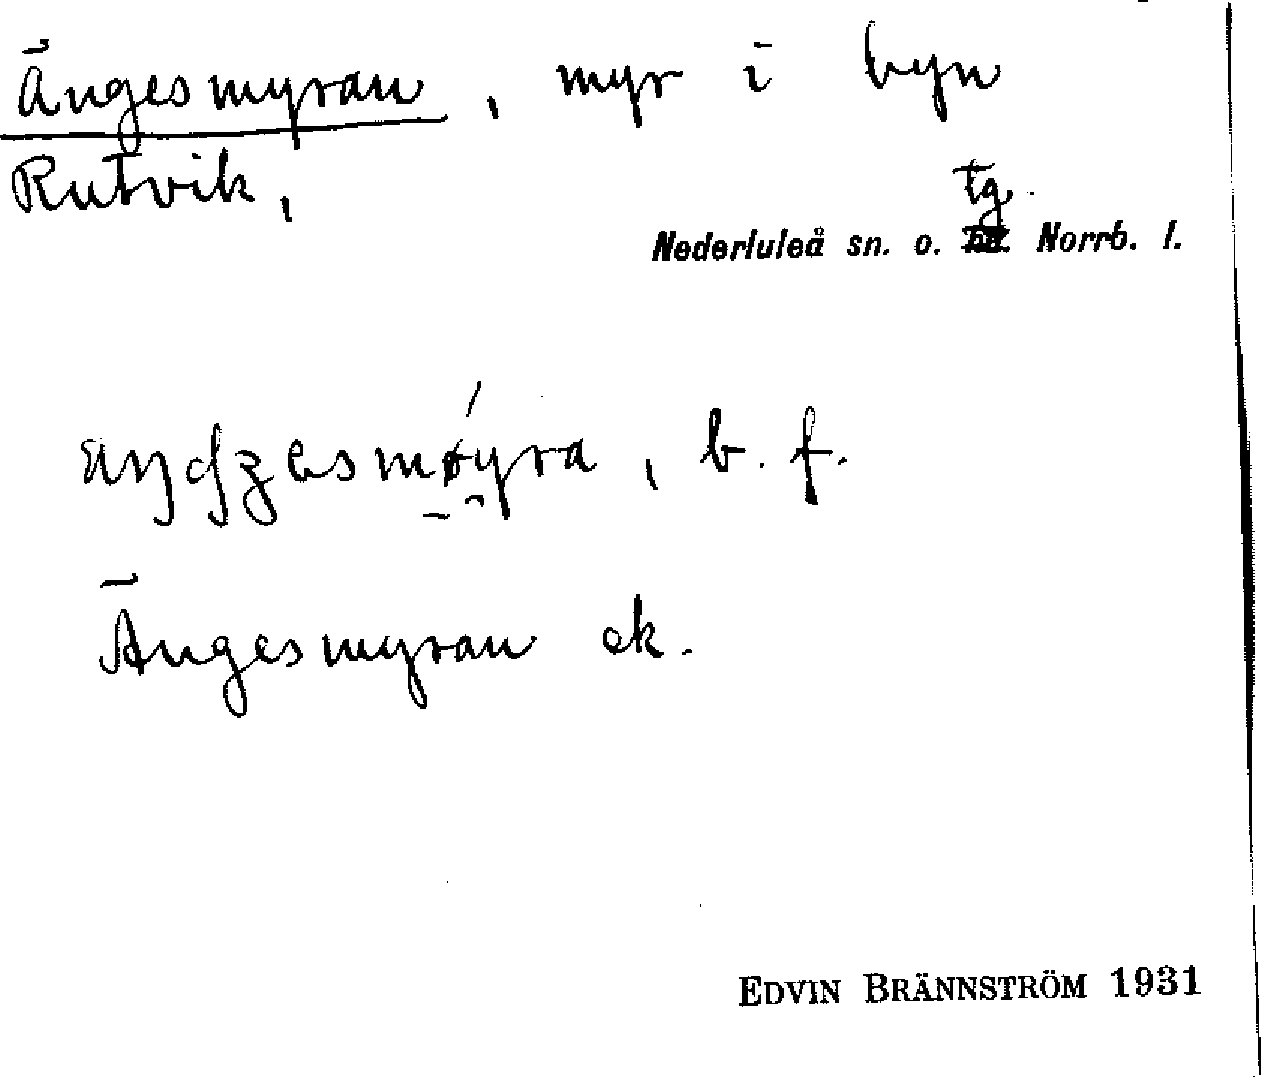 Ängesmyran, myr i byn
Rutvik,
tg.
Nederluleå sn. o. Norrb. l.
b. f.
Ängesmyran ek.
EDVIN BRÄNNSTRÖM 1931